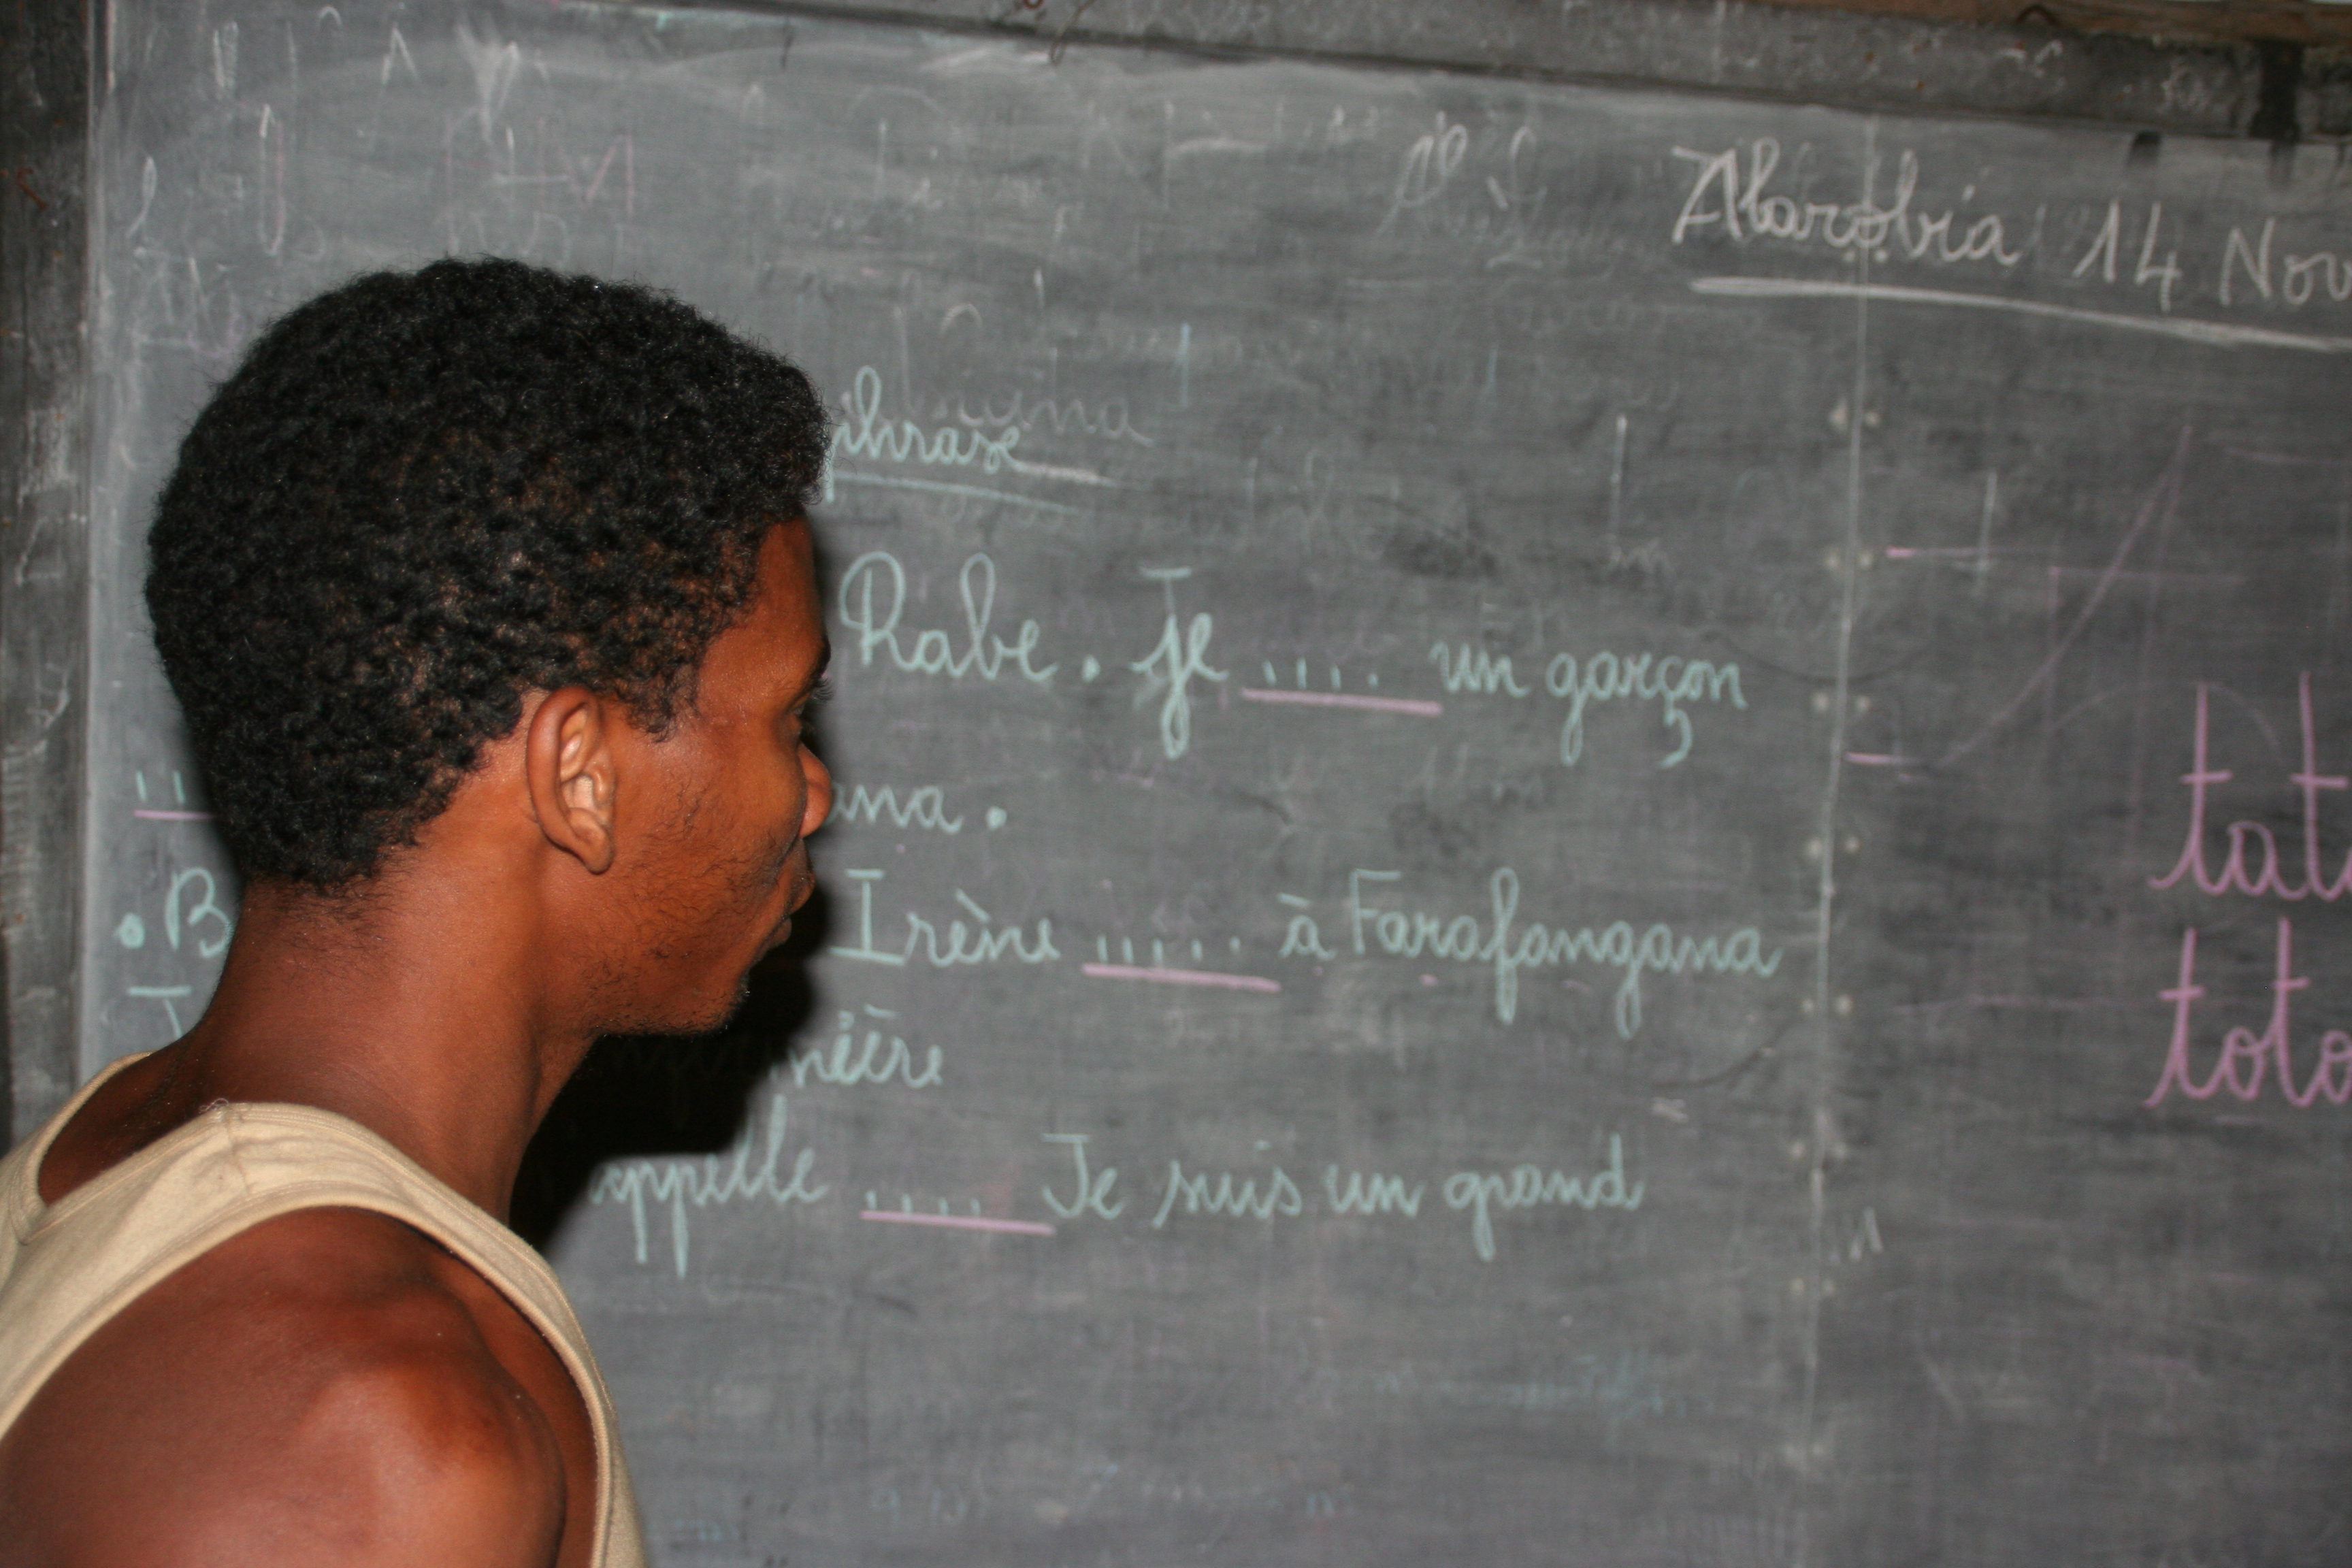 Alarobia 14 Nov
phrase
Rabe. Je .... un garçon
ana.
. B Irène ..... à Farafangana
appelle .... Je suis un grand
tata
toto